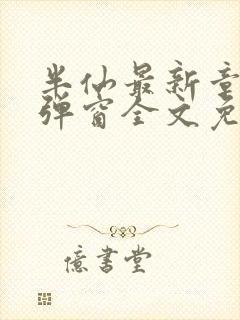 半仙最新章
弹窗全文免
億書堂